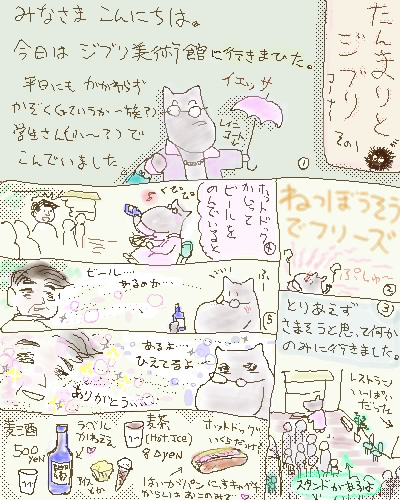 たんまりと
ジブリ
コーナー
その1
みなさま こんにちは。
今日は ジブリ美術館に行きまひた。
平日にも かかわらず
かぞく(っていうか一族?)
学生さん(小〜?)で
こんでいました
イエッサ
レイニー
コート
①
ねつぼうそう
でフリーズ
ぷしゅ〜
②
③
とりあえず
さまそうと思って何か
のみに行きました。
レストラン
いっぱい
だった
スタンドがあるよ
ホットドッグ
かって
ビールを
のんでいると
④
ぐびぐび
ビール・・・・
あるのか…
ふー
⑤
あるよ…
ひえてるよ…
ありがとう…
麦酒
500
YEN
ラベル
かわええ
アイス
麦茶
(Hot.Ice)
80YEN
ホットドッグ
いくらだっけ
はいがパンにきざみ
からしはおこのみで